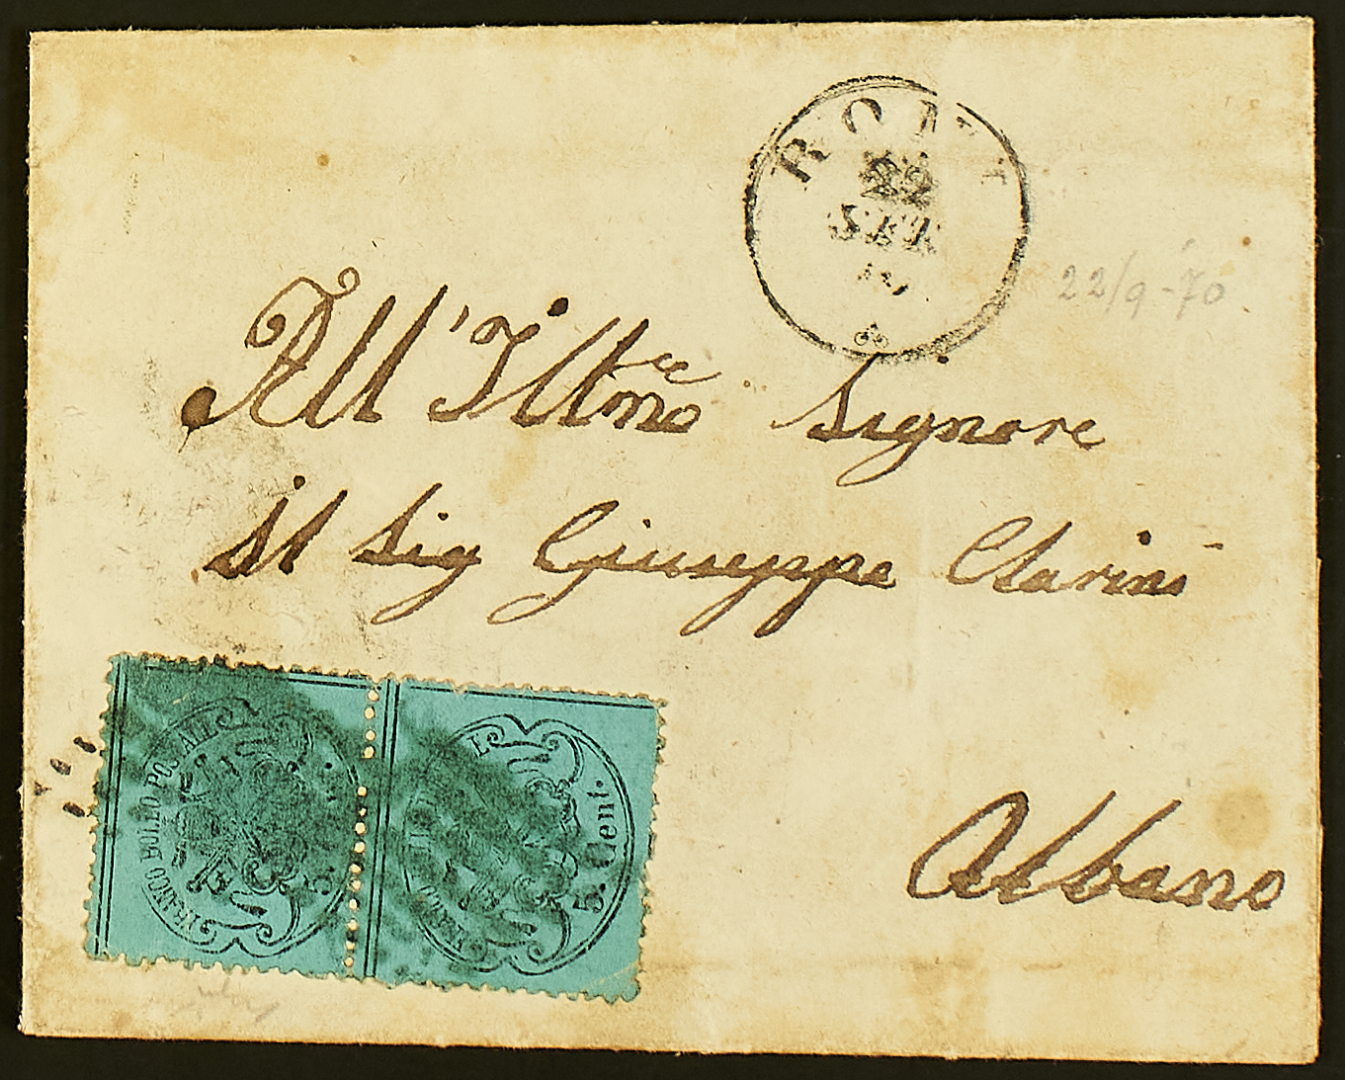 ROMA
22
SET
22/9-70
All'Illmo Signore
Il Sig Giuseppe Clarini
Albano
FRANCO BOLLO POSTALE
5.
FRANCO
5. Cent.